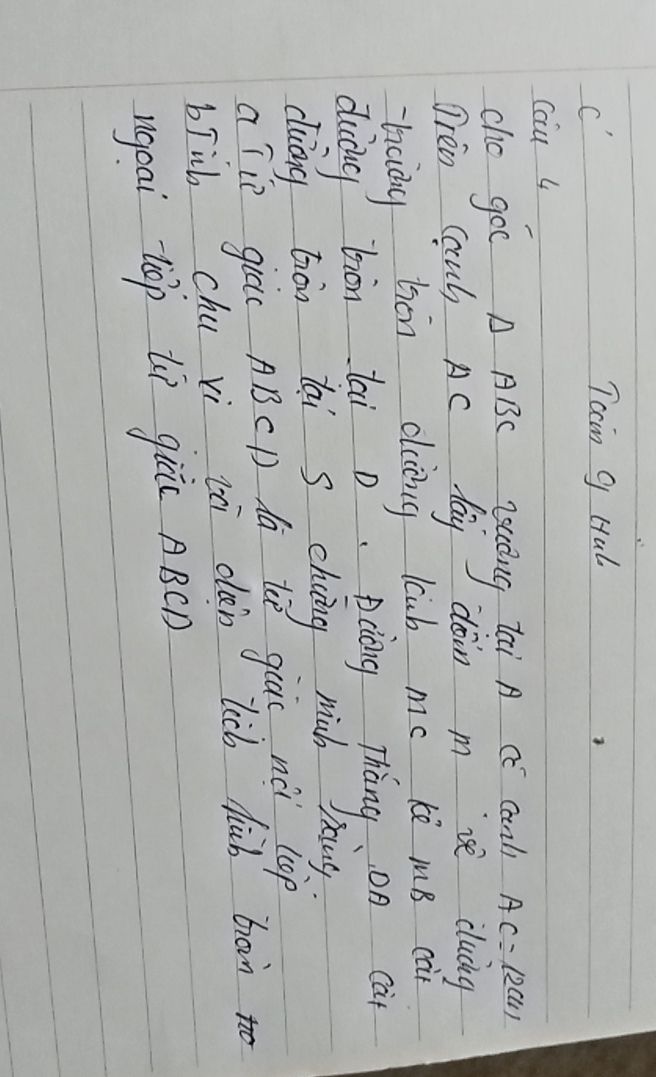 Toán 9 HuB
Câu 4
cho góc Δ ABC vuông tại A có cạnh AC = 12cm
Trên cạnh AC lấy điểm M vẽ đường
tròn đường kính MC kẻ MB cắt
đường tròn tại D. Đường Thẳng DA cắt
đường tròn tại S chứng minh rằng.
a Tứ giác ABCD là tứ giác nội tiếp
b Tính chu vi và diện tích hình tròn
ngoại tiếp tứ giác ABCD